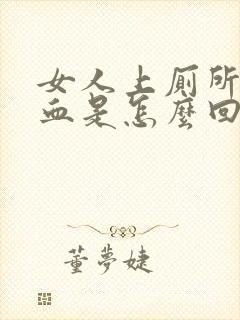 女人上厕所
血是怎麼回
董夢婕